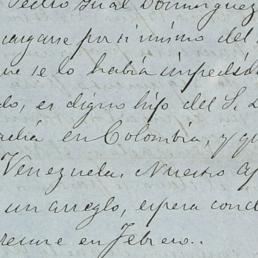 Pedro Gual Domínguez
cargarse por sí mismo del
que se lo había impedido
do, es digno hijo del S. D
adia en Colombia, y q
Venezuela. Nuestro ap
un arreglo, espera conc
resure en Febrero..